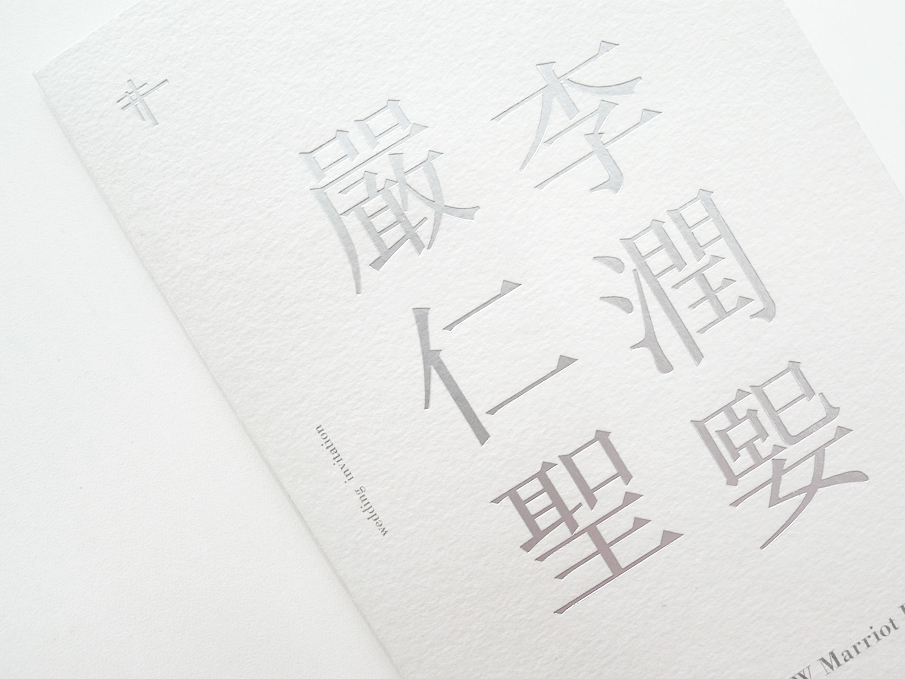 李潤媐
嚴仁聖
wedding invitation
W Marriot